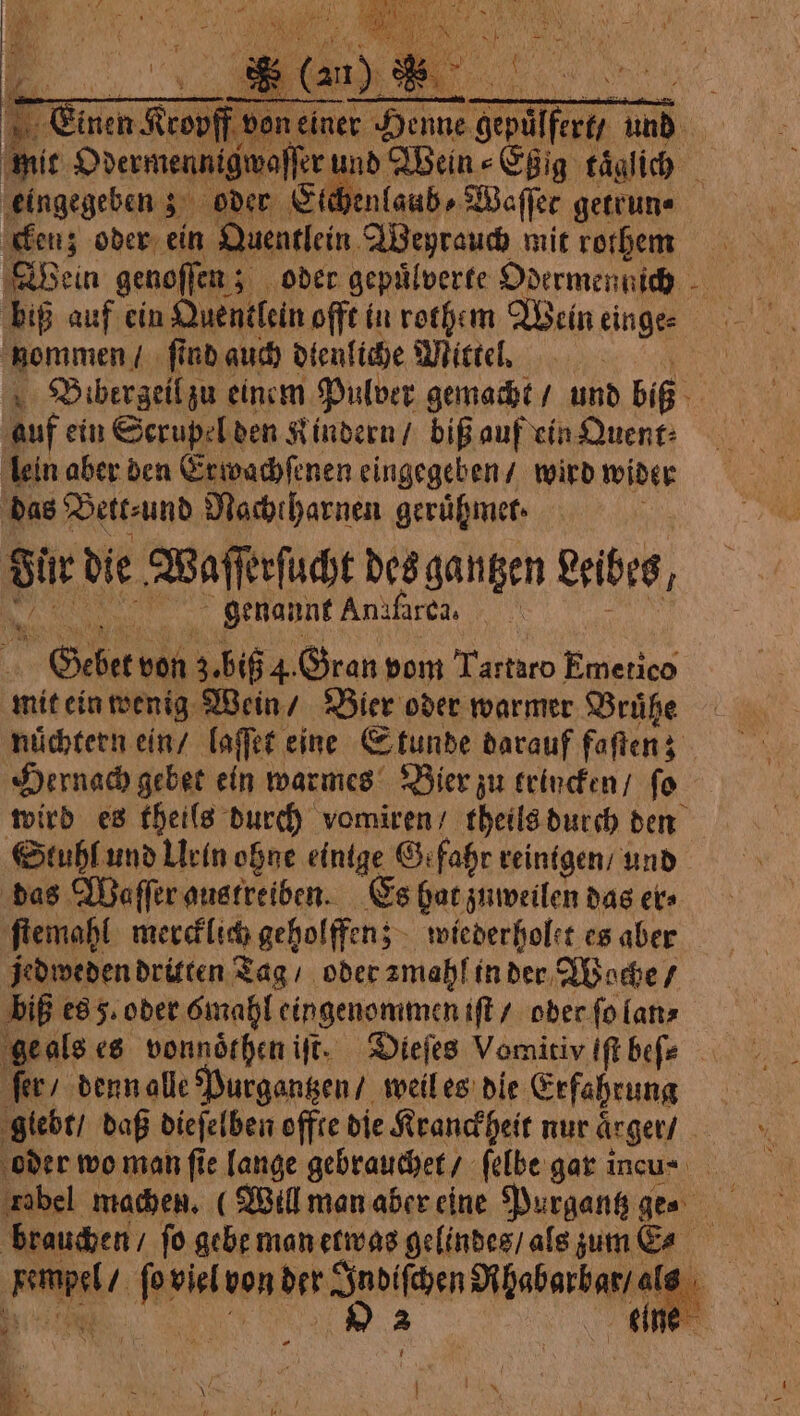 ❦ (211) ❦
Einen Kropff von einer Henne gepülfert/ und
mit Odermennigwasser und Wein-Eßig täglich
eingegeben; oder Eichenlaub-Wasser getrun-
cken; oder ein Quentlein Weyrauch mit rothem
Wein genossen; oder gepülverte Odermennich
biß auf ein Quentlein offt in rothem Wein einge-
nommen / sind auch dienliche Mittel.
Bibergeil zu einem Pulver gemacht / und biß
auf ein Scrupel den Kindern / biß auf ein Quent-
lein aber den Erwachsenen eingegeben / wird wider
das Bett-und Nachtharnen gerühmet.
Für die Wassersucht des gantzen Leibes,
genannt Anasarca.
Gebet von 3. biß 4. Gran vom Tartaro Emetico
mit ein wenig Wein / Bier oder warmer Brühe
nüchtern ein / lasset eine Stunde darauf fasten;
Hernach gebet ein warmes Bier zu trincken / so
wird es theils durch vomiren / theils durch den
Stuhl und Urin ohne einige Gefahr reinigen / und
das Wasser austreiben. Es hat zuweilen das er-
stemahl mercklich geholffen; wiederholet es aber
jedweden dritten Tag / oder 2mahl in der Woche /
biß es 5. oder 6mahl eingenommen ist / oder so lan-
ge als es vonnöthen ist. Dieses Vomitiv ist bes-
ser / denn alle Purgantzen / weil es die Erfahrung
giebt / daß dieselben offte die Kranckheit nur ärger /
oder wo man sie lange gebrauchet / selbe gar incu-
rabel machen. (Will man aber eine Purgantz ge-
brauchen / so gebe man etwas gelindes / als zum E-
xempel / so viel von der Indischen Rhabarbar / als
O 2 eine